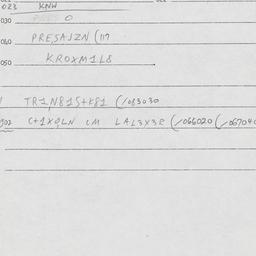 023 KNW
030 O
040 PRESAJZN (117
050 KROXM1L8
TR1N815+K81 (/083030
C+1XQLN CM LAL3X3R (/066020 (/067040